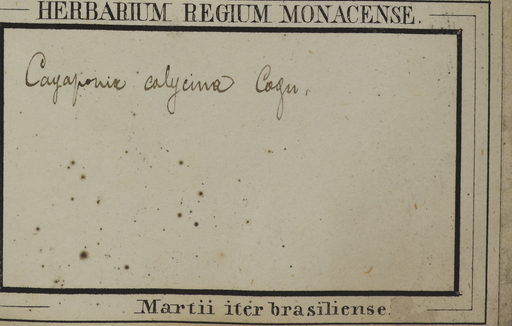 HERBARIUM REGIUM MONACENSE.
Cayaponia calycina Cogn.
Martii iter brasiliense.